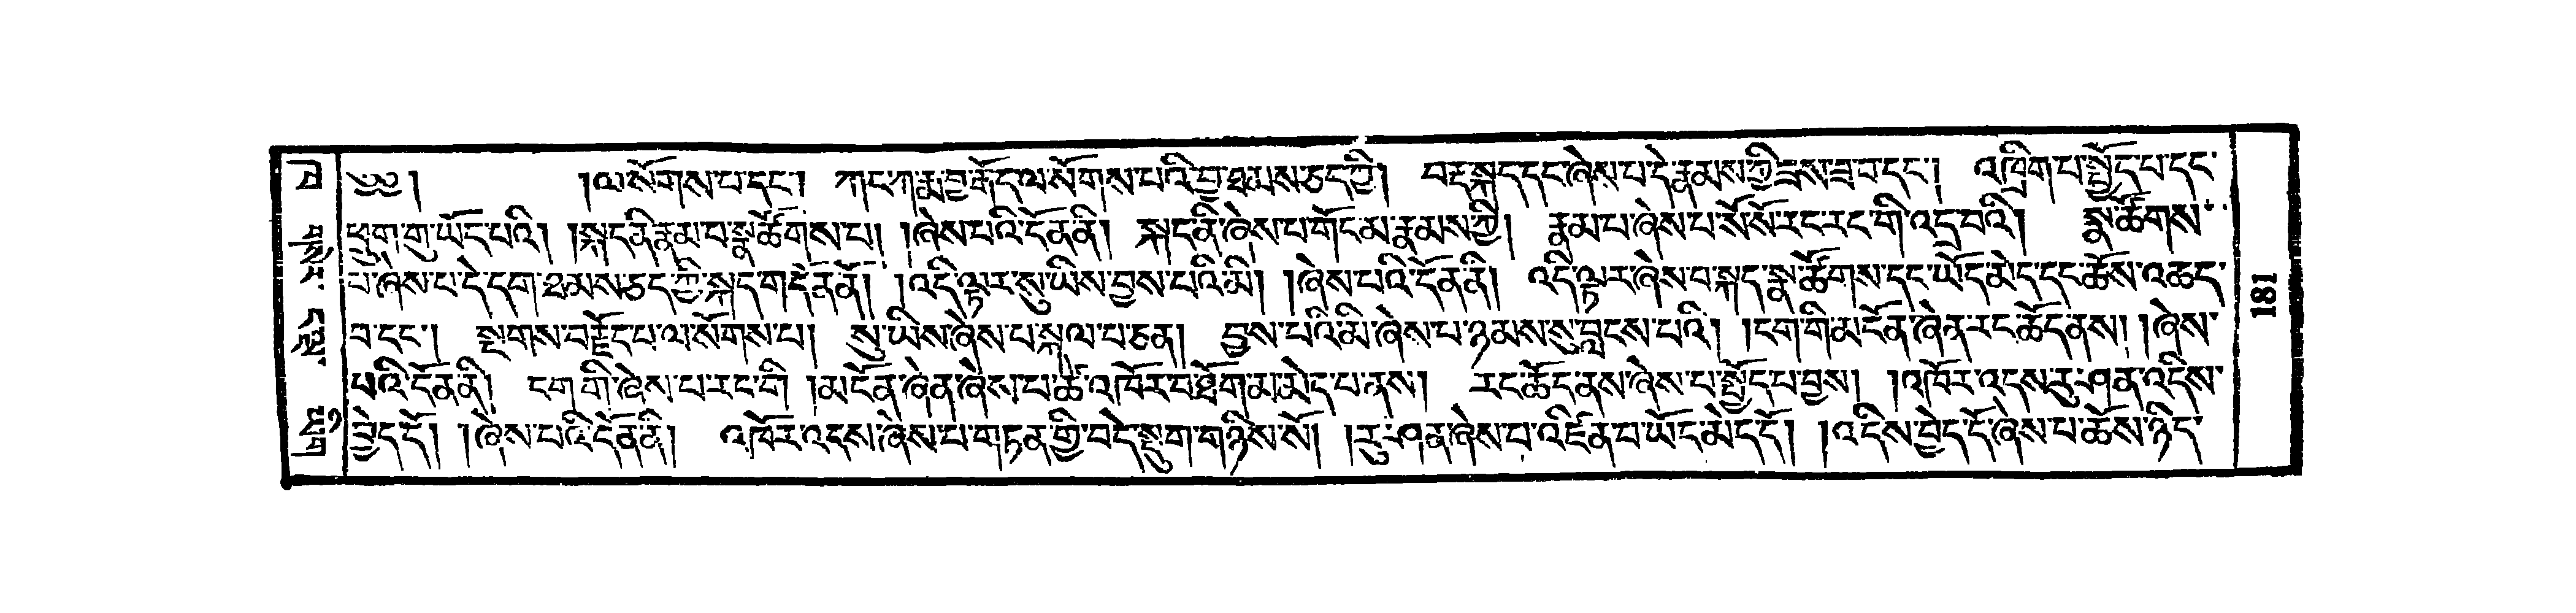 ༄༅། །ལ་སོགས་པ་དང་། ཀང་ཀ་རྨ་བྱ་རྒོད་ལ་སོགས་པའི་བྱ་ཐམས་ཅད་ཀྱི། བརྡ་སྐད་དང་ཞེས་པ་དེ་རྣམས་ཀྱི་ཟས་ཟ་བ་དང་། འཁྲིག་པ་སྤྱོད་པ་དང་
ཕྲུ་གུ་ཡོད་པའི། །སྐད་ནི་རྣམ་པ་སྣ་ཚོགས་པ། །ཞེས་པའི་དོན་ནི། སྐད་ནི་ཞེས་པ་གོང་མ་རྣམས་ཀྱི། རྣམ་པ་ཞེས་པ་སོ་སོ་རང་རང་གི་འདྲ་བའི། སྣ་ཚོགས་
པ་ཞེས་པ་དེ་དག་ཐམས་ཅད་ཀྱི་སྐད་གདོན་ནོ། །འདི་ལྟར་སུ་ཡིས་བྱས་པའི་མི། །ཞེས་པའི་དོན་ནི། འདི་ལྟར་ཞེས་པ་སྐད་སྣ་ཚོགས་དང་ཡོད་མེད་དང་ཆོས་འཆད་
པ་དང་། སྔགས་བརྗོད་པ་ལ་སོགས་པ། སུ་ཡིས་ཞེས་པ་སྐལ་པ་ཅན། བྱས་པའི་མི་ཞེས་པ་ཉམས་སུ་བླངས་པའི། །ངག་གི་མངོན་ཞེན་རང་ཆོད་ནས། །ཞེས་
པའི་དོན་ནི། ངག་གི་ཞེས་པ་རང་གི །མངོན་ཞེན་ཞེས་པ་ཚེ་འཁོར་བ་ཐོག་མ་མེད་པ་ནས། རང་ཆོད་ནས་ཞེས་པ་སྤྱོད་པ་བྱས། །འཁོར་འདས་རུ་ཤན་འདིས་
བྱེད་དོ། །ཞེས་པའི་དོན་ནི། འཁོར་འདས་ཞེས་པ་གཏན་གྱི་བདེ་སྡུག་གཉིས་སོ། །རུ་ཤན་ཞེས་པ་འཛིན་པ་ཡོད་མེད་དོ། །འདིས་བྱེད་དོ་ཞེས་པ་ཆོས་ཉིད་
181